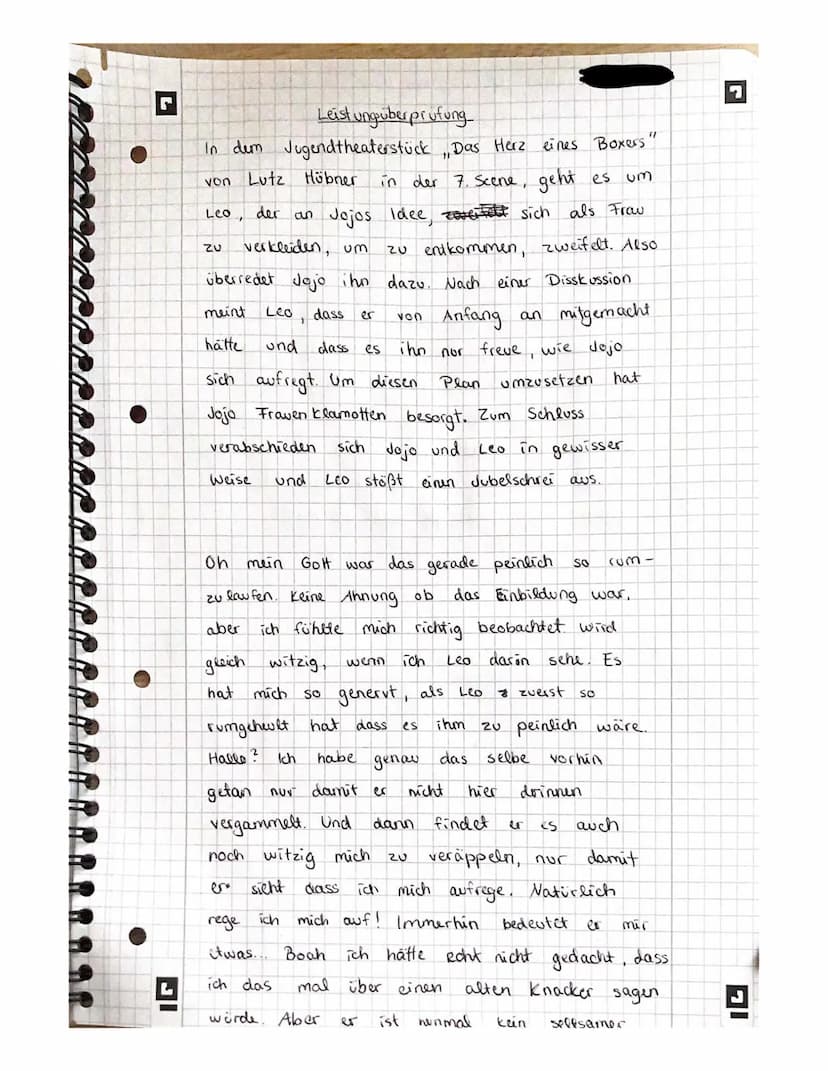 Leistungsüberprüfung
In dem Jugendtheaterstück „Das Herz eines Boxers"
von Lutz Hübner in der 7. Scene, geht es um
Leo, der an Jojos Idee, sich als Frau
zu verkleiden, um zu entkommen, zweifelt. Also
überredet Jojo ihn dazu. Nach einer Disskussion
meint Leo, dass er von Anfang an mitgemacht
hätte und dass es ihn nor freue, wie Jojo
sich aufregt. Um diesen Plan umzusetzen hat
Jojo Frauenklamotten besorgt. Zum Schluss
verabschieden sich Jojo und Leo in gewisser
Weise und Leo stößt einen Jubelschrei aus.
Oh mein Gott war das gerade peinlich so rum-
zulaufen. Keine Ahnung ob das Einbildung war,
aber ich fühlte mich richtig beobachtet. Wird
gleich witzig, wenn ich Leo darin sehe. Es
hat mich so genervt, als Leo zuerst so
rumgeheult hat dass es ihm zu peinlich wäre.
Hallo? Ich habe genau das selbe vorhin
getan nur damit er nicht hier drinnen
vergammelt. Und dann findet er es auch
noch witzig mich zu veräppeln, nur damit
er sieht dass ich mich aufrege. Natürlich
rege ich mich auf! Immerhin bedeutet er mir
etwas... Boah ich hätte echt nicht gedacht, dass
ich das mal über einen alten Knacker sagen
würde. Aber er ist nunmal kein seltsamer